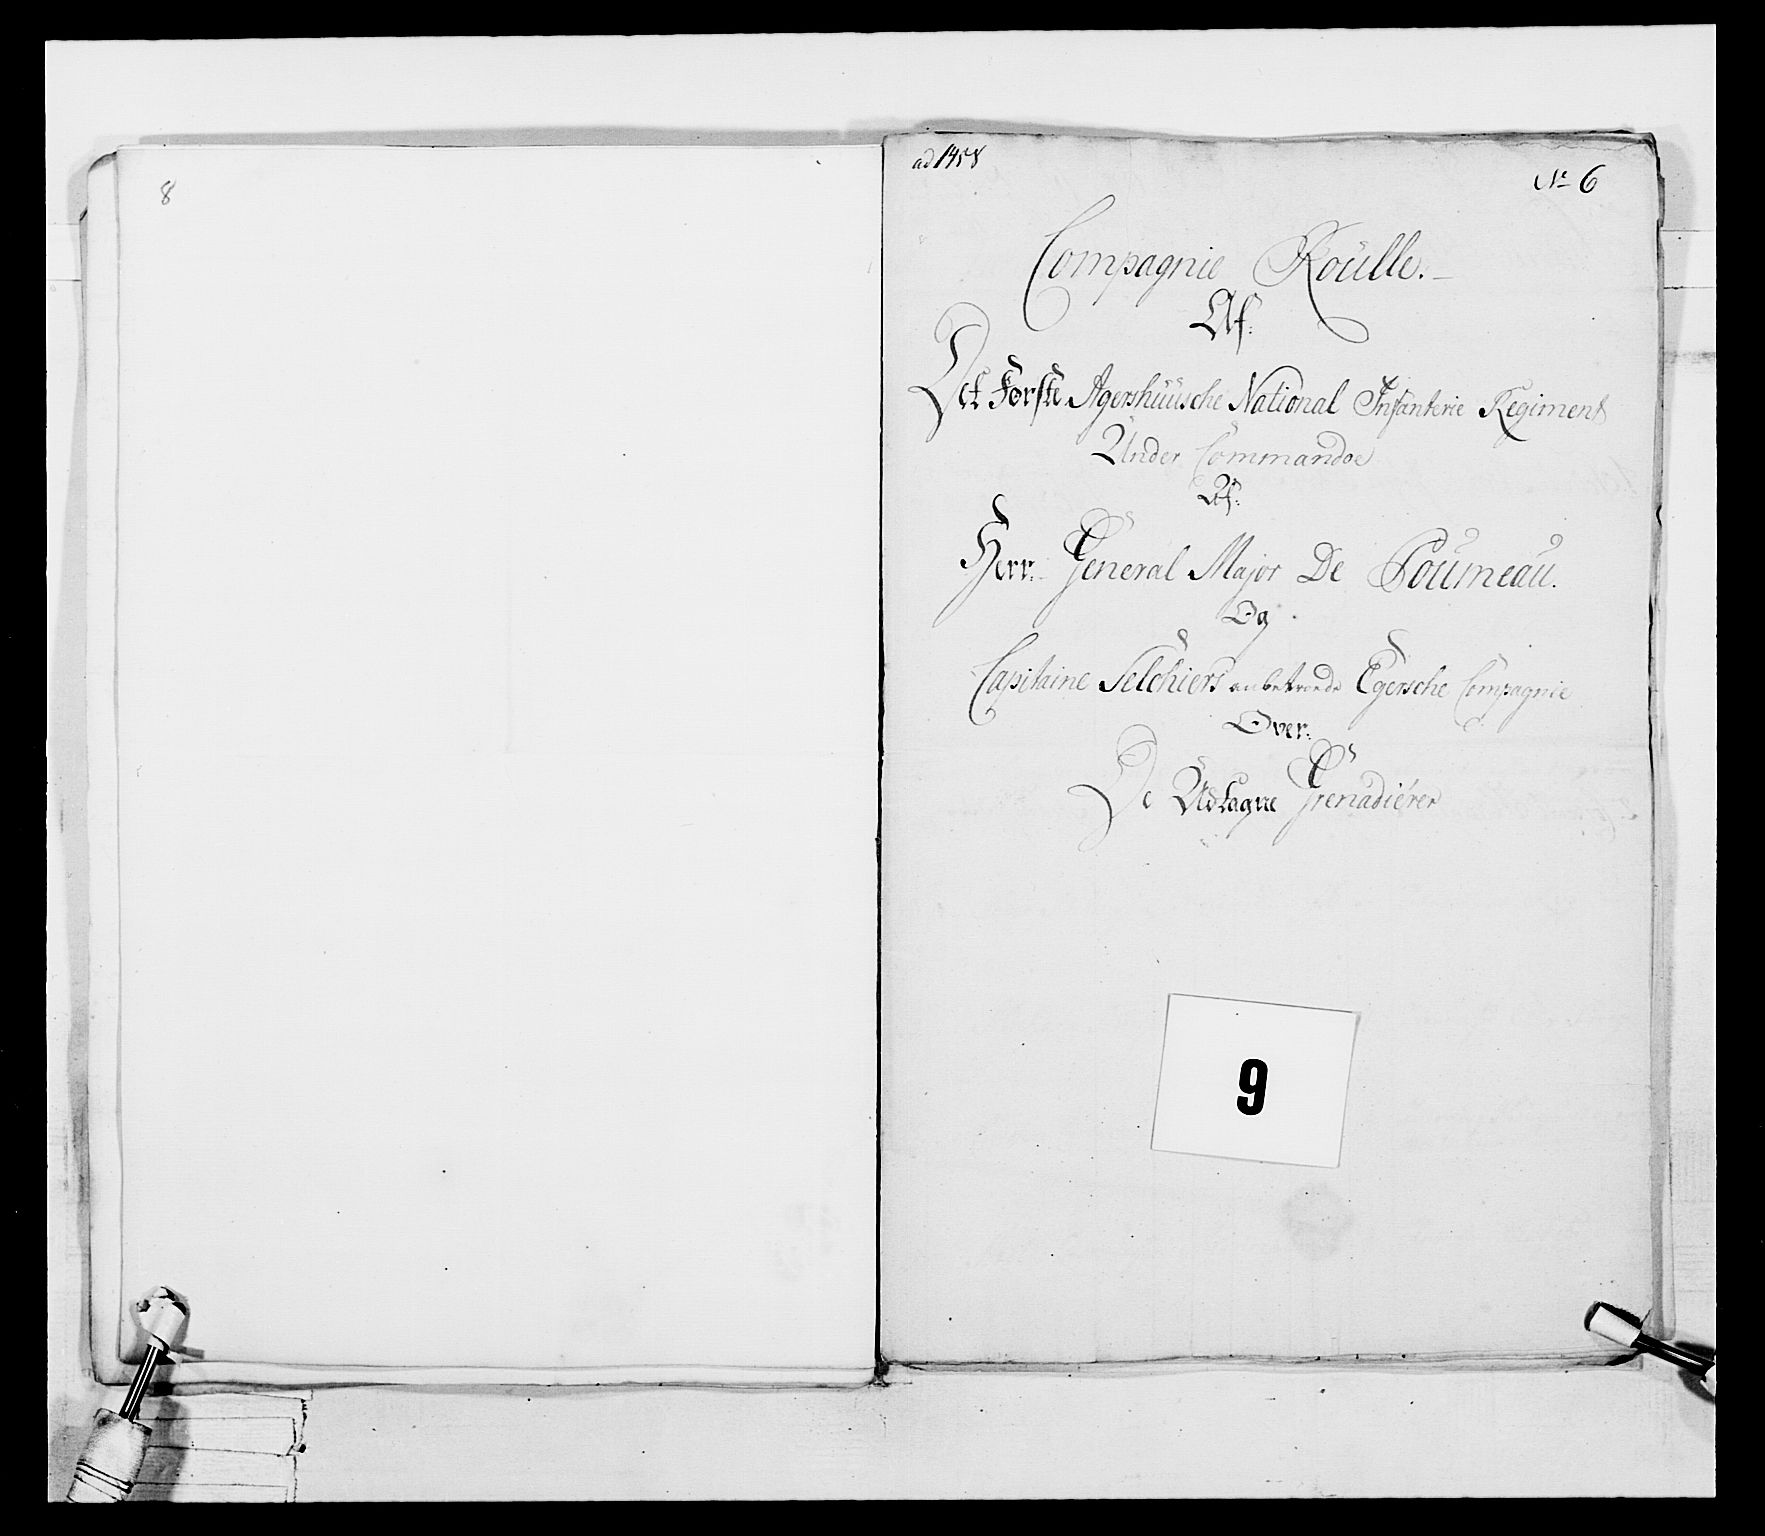 8
ad 1458
No 6
Compagnie Roülle.
Af.
Det Første Agershuusche National Infanterie Regiment
Under Commandoe
Af.
Herr. General Major De Poumeau.
Og
Capitaine Selchiers anbetroede Egersche Compagnie
Over.
De Udtagne Grenadiérer
9